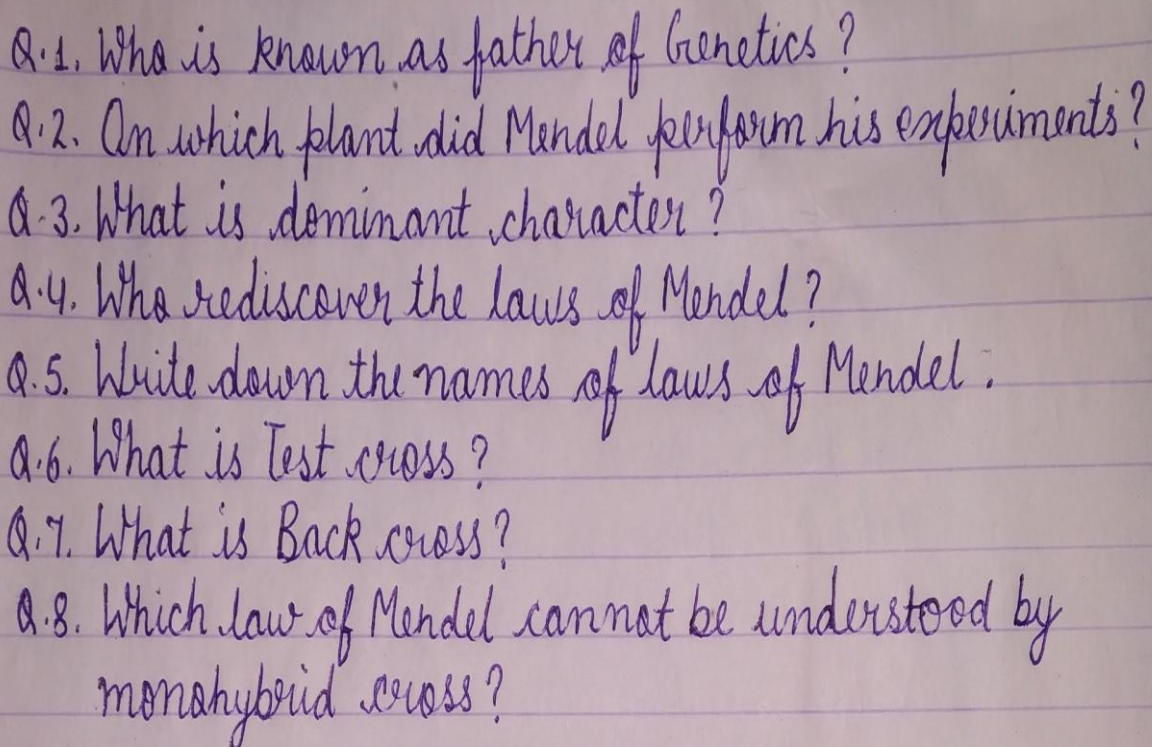 Q.1. Who is known as father of Genetics ?
Q.2. On which plant did Mendel perform his experiments ?
Q.3. What is dominant character ?
Q.4. Who rediscover the laws of Mendel ?
Q.5. Write down the names of laws of Mendel .
Q.6. What is Test cross ?
Q.7. What is Back cross ?
Q.8. Which law of Mendel cannot be understood by
monohybrid cross ?